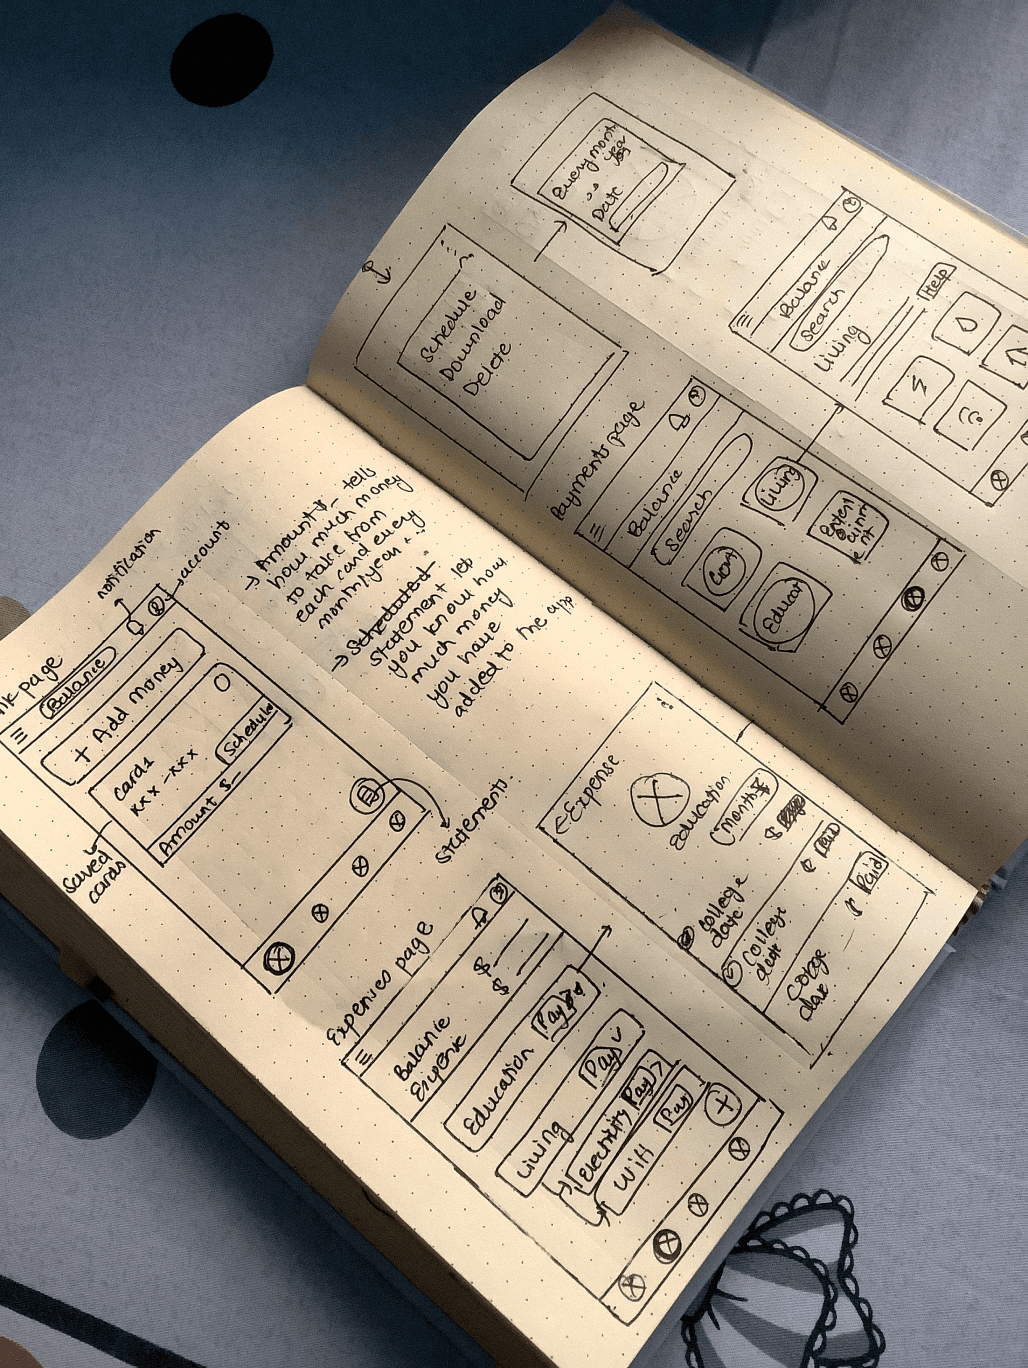 notification
account
page
Balance
+ Add money
Card1
xxx - xxx
Schedule
Amount $-
Saved
cards
Statements.
→ Amount $_ tells
how much money
to take from
each card every
month/year...
→ Scheduled
statement let
you know how
much money
you have
added to the app
Expenses page
Balance $
Expense $
Education Pay
Living Pay
Electricity Pay >
Wifi Pay
+
← Expense
Education
Month
$
College
date
Paid
College
date
$ Paid
College
date
Schedule
Download
Delete
Every month
Date
Payments page
Balance
Search
Govt
Living
Educat
Entert
ainm
ent
Balance
Search
Living
Help